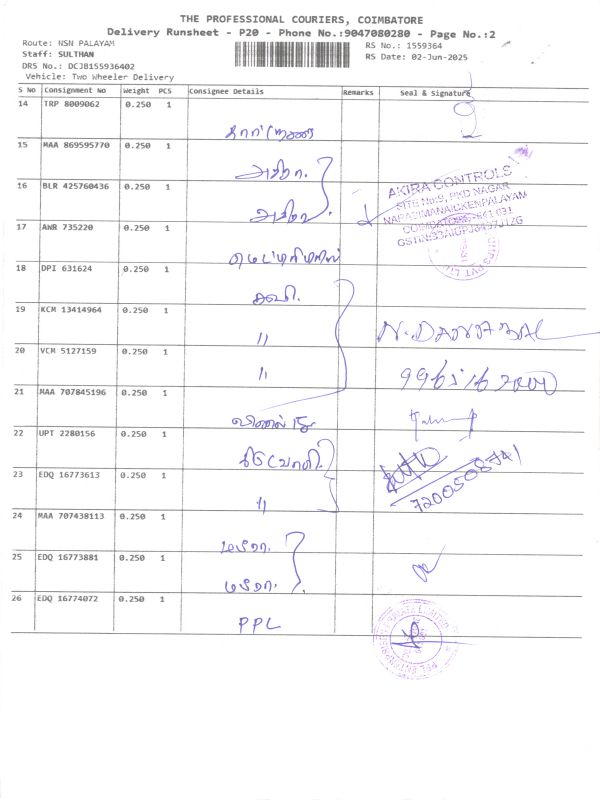 THE PROFESSIONAL COURIERS, COIMBATORE
Delivery Runsheet - P20 - Phone No.:9047080280 - Page No.:2
Route: NSN PALAYAM
Staff: SULTHAN
DRS No.: DCJB155936402
Vehicle: Two Wheeler Delivery
RS No.: 1559364
RS Date: 02-Jun-2025
S No Consignment No Weight PCS Consignee Details Remarks Seal & Signature
14 TRP 8009062 0.250 1
15 MAA 869595770 0.250 1
16 BLR 425760436 0.250 1
AKIRA CONTROLS
SITE No:9, PKD NAGAR
NARASIMANAICKENPALAYAM
COIMBATORE-641 031
17 AWR 735220 0.250 1
18 DPI 631624 0.250 1
கவி.
19 KCM 13414964 0.250 1
"
20 VCM 5127159 0.250 1
"
21 MAA 707845196 0.250 1
22 UPT 2280156 0.250 1
23 EDQ 16773613 0.250 1
"
7200508741
24 MAA 707438113 0.250 1
மீரா.
25 EDQ 16773881 0.250 1
மீரா.
26 EDQ 16774072 0.250 1
PPL